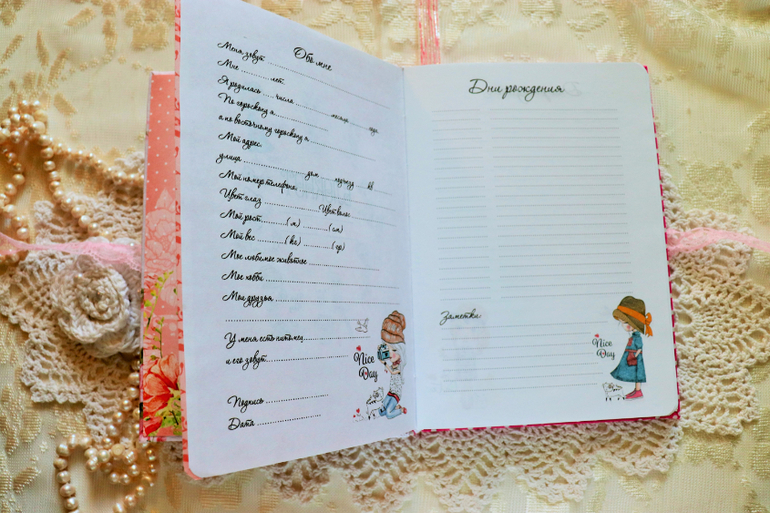 Обо мне
Меня зовут
Мне ..... лет.
Я родилась ..... числа ..... месяца ..... года.
По гороскопу я
а по восточному гороскопу я
Мой адрес:
улица ..... дом ..... подъезд ..... кв
Мой номер телефона:
Цвет глаз ..... Цвет волос
Мой рост ..... (м) ..... (см)
Мой вес ..... (кг) ..... (гр)
Мое любимое животное
Мое хобби
Мои друзья
У меня есть питомец
и его зовут
Nice
Day
Подпись
Дата
Дни рождения
Заметки
Nice
Day